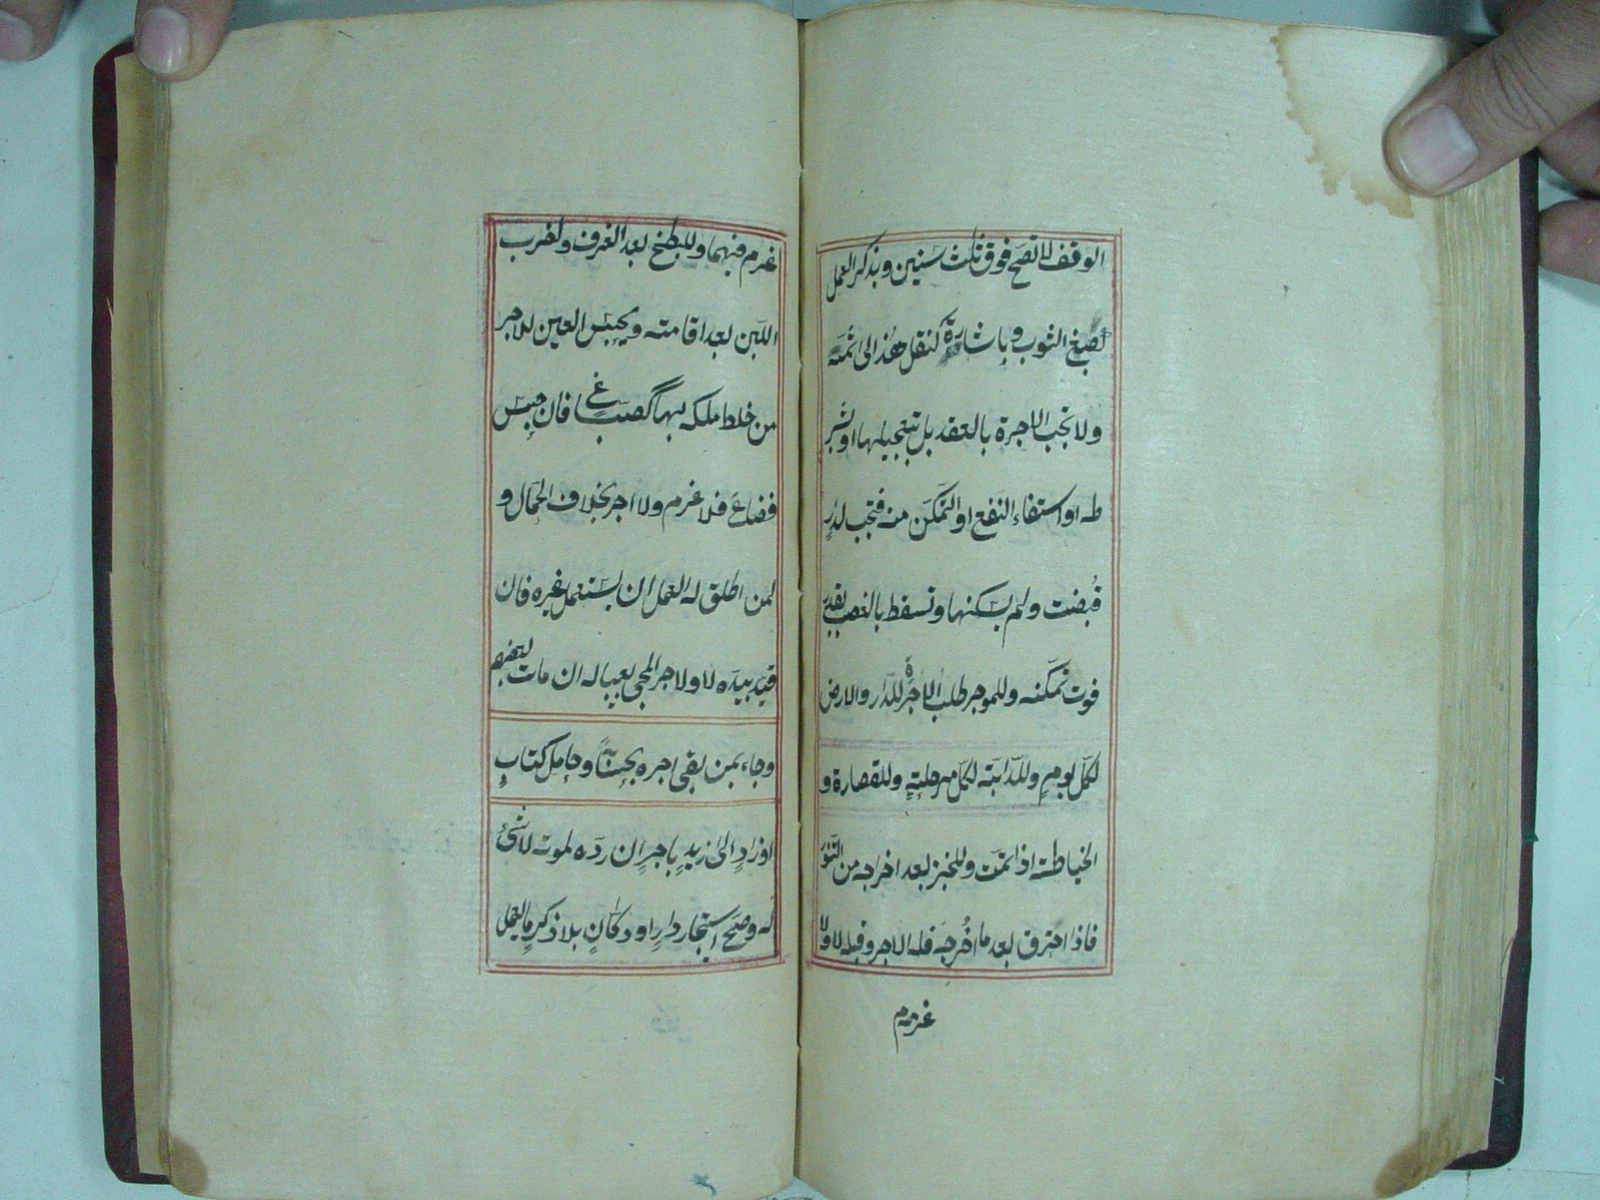 الوقف لا تصح فوق ثلث سنين وبذكر العمل
كصبغ الثوب وباشارة كنقل هذا الى ثمه
ولا تجب الاجرة بالعقد بل بتعجيلها او بشر
طه او استفاء النفع او التمكن منه فتجب لدارٍ
قُبضت ولم يسكنها وتسقط بالغصب بقدر
فوت تمكنه وللموجر طلب الاجرة للدار والارض
لكل يومٍ وللدابة لكل مرحلةٍ وللقصارة و
الخياطة اذا تمت وللخبز بعد اخراجه من التنور
فاذا احترق بعد ما اخرجه فله الاجر وقبله لا ولا
غرم
غرم فيهما وللطبخ بعد الغرف ولضرب
اللبن بعد اقامته ويحبس العين للاجر
من خلط ملكه بها كصبّاغ فان حبس
فضاع فلا غرم ولا اجر بخلاف الحمال و
لمن اطلق له العمل ان يستعمل غيره فان
قيد بيده لا ولاجر المجئ بعياله ان مات بعضهم
وجاء بمن بقى اجره بحسابه وحامل كتابٍ
او زادٍ الى زيدٍ باجرٍ ان رده لموته لا شئ
له وصح استيجار دارٍ او دكانٍ بلا ذكر ما يعمل